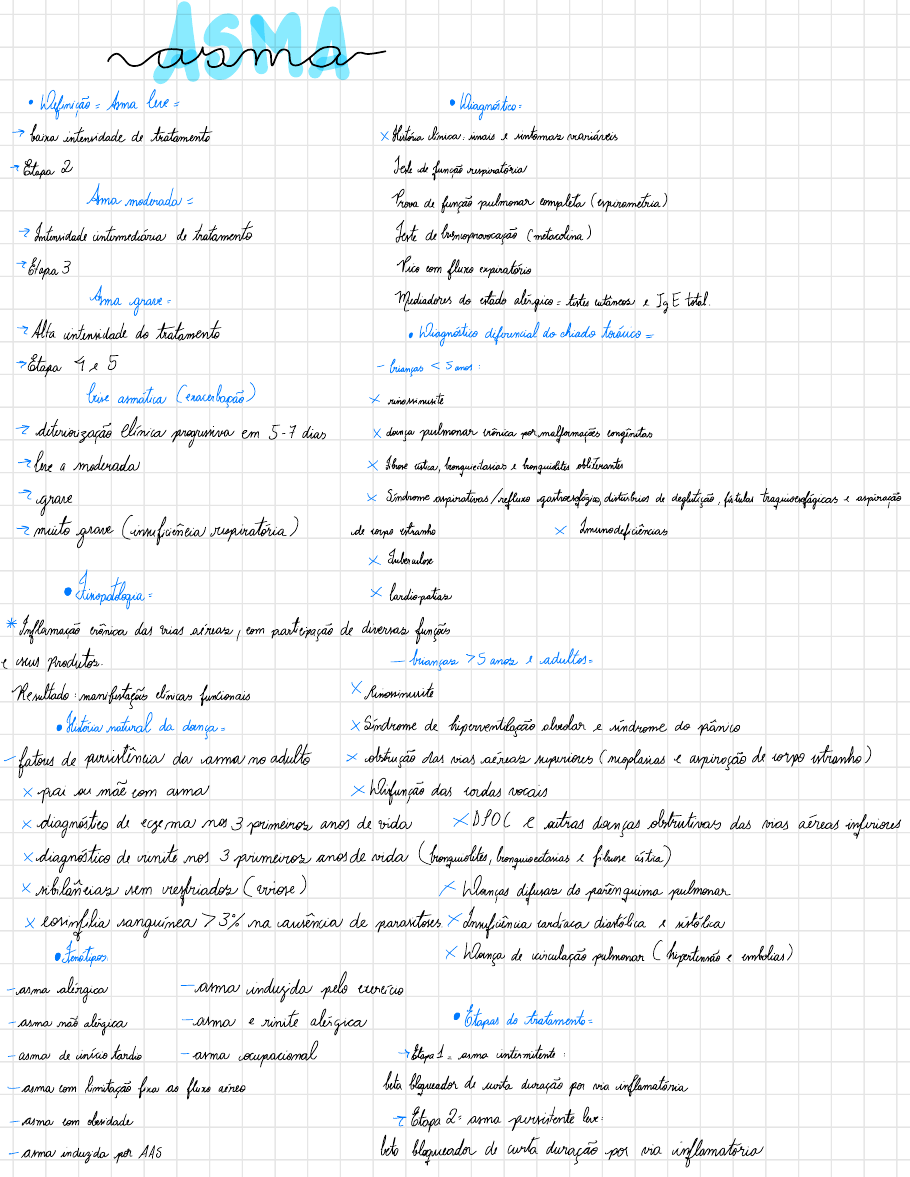 ASMA
asma
• Definição = Asma leve =
→ baixa intensidade de tratamento
→ Etapa 2
Asma moderada =
→ Intensidade intermediária de tratamento
→ Etapa 3
Asma grave =
→ Alta intensidade do tratamento
→ Etapa 4 e 5
Crise asmática (exacerbação)
→ deteriorização clínica progressiva em 5-7 dias
→ leve a moderada
→ grave
→ muito grave (insuficiência respiratória)
• Fisiopatologia =
* Inflamação crônica das vias aéreas, com participação de diversas funções
e seus produtos.
Resultado: manifestações clínicas funcionais
• História natural da doença =
- fatores de persistência da asma no adulto
× pai ou mãe com asma
× diagnóstico de eczema nos 3 primeiros anos de vida
× diagnóstico de rinite nos 3 primeiros anos de vida
× sibilâncias sem resfriados (virose)
× eosinfilia sanguínea > 3% na ausência de parasitoses
• Fenótipos
- asma alérgica
- asma não alérgica
- asma de início tardio
- asma com limitação fixa ao fluxo aéreo
- asma com obesidade
- asma induzida por AAS
- asma induzida pelo exercício
- asma e rinite alérgica
- asma ocupacional
• Diagnóstico =
× História clínica: sinais e sintomas variáveis
Teste de função respiratória
Prova de função pulmonar completa (espirometria)
Teste de broncoprovocação (metacolina)
Pico com fluxo expiratório
Mediadores do estado alérgico = testes cutâneos e IgE total.
• Diagnóstico diferencial do chiado torácico =
- Crianças < 5 anos:
× rinossinusite
× doença pulmonar crônica por malformações congênitas
× fibrose cística, bronquiectasias e bronquiolites obliterantes
× Síndrome aspirativas/refluxo gastroesofágico, distúrbios de deglutição, fístulas traqueoesofágicas e aspiração
de corpo estranho
× Imunodeficiências
× Tuberculose
× Cardiopatias
- Crianças > 5 anos e adultos =
× Rinossinusite
× Síndrome de hiperventilação alveolar e síndrome do pânico
× obstrução das vias aéreas superiores (neoplasias e aspiração de corpo estranho)
× Disfunção das cordas vocais
× DPOC e outras doenças obstrutivas das vias aéreas inferiores
(bronquiolites, bronquiectasias e fibrose cística)
× Doenças difusas do parênquima pulmonar
× Insuficiência cardíaca diastólica e sistólica
× Doença de circulação pulmonar (hipertensão e embolias)
• Etapas do tratamento =
→ Etapa 1 = asma intermitente:
beta bloqueador de curta duração por via inflamatória
→ Etapa 2: asma persistente leve:
beta bloqueador de curta duração por via inflamatória